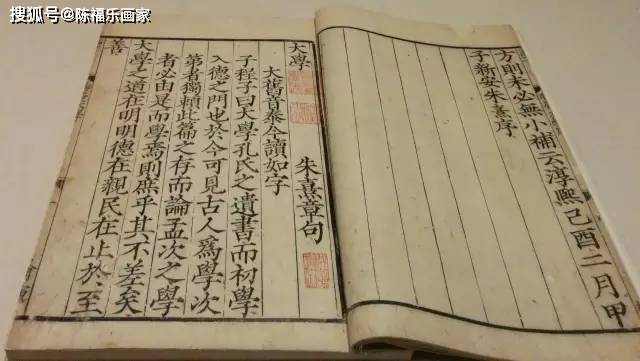 搜狐号@陈福乐画家
方則未必無小補云淳熙己酉二月甲
子新安朱熹序
大學 朱熹章句
大舊音泰今讀如字
子程子曰大學孔氏之遺書而初學
入德之門也於今可見古人爲學次
第者獨賴此篇之存而論孟次之學
者必由是而學焉則庶乎其不差矣
大學之道在明明德在親民在止於至
善